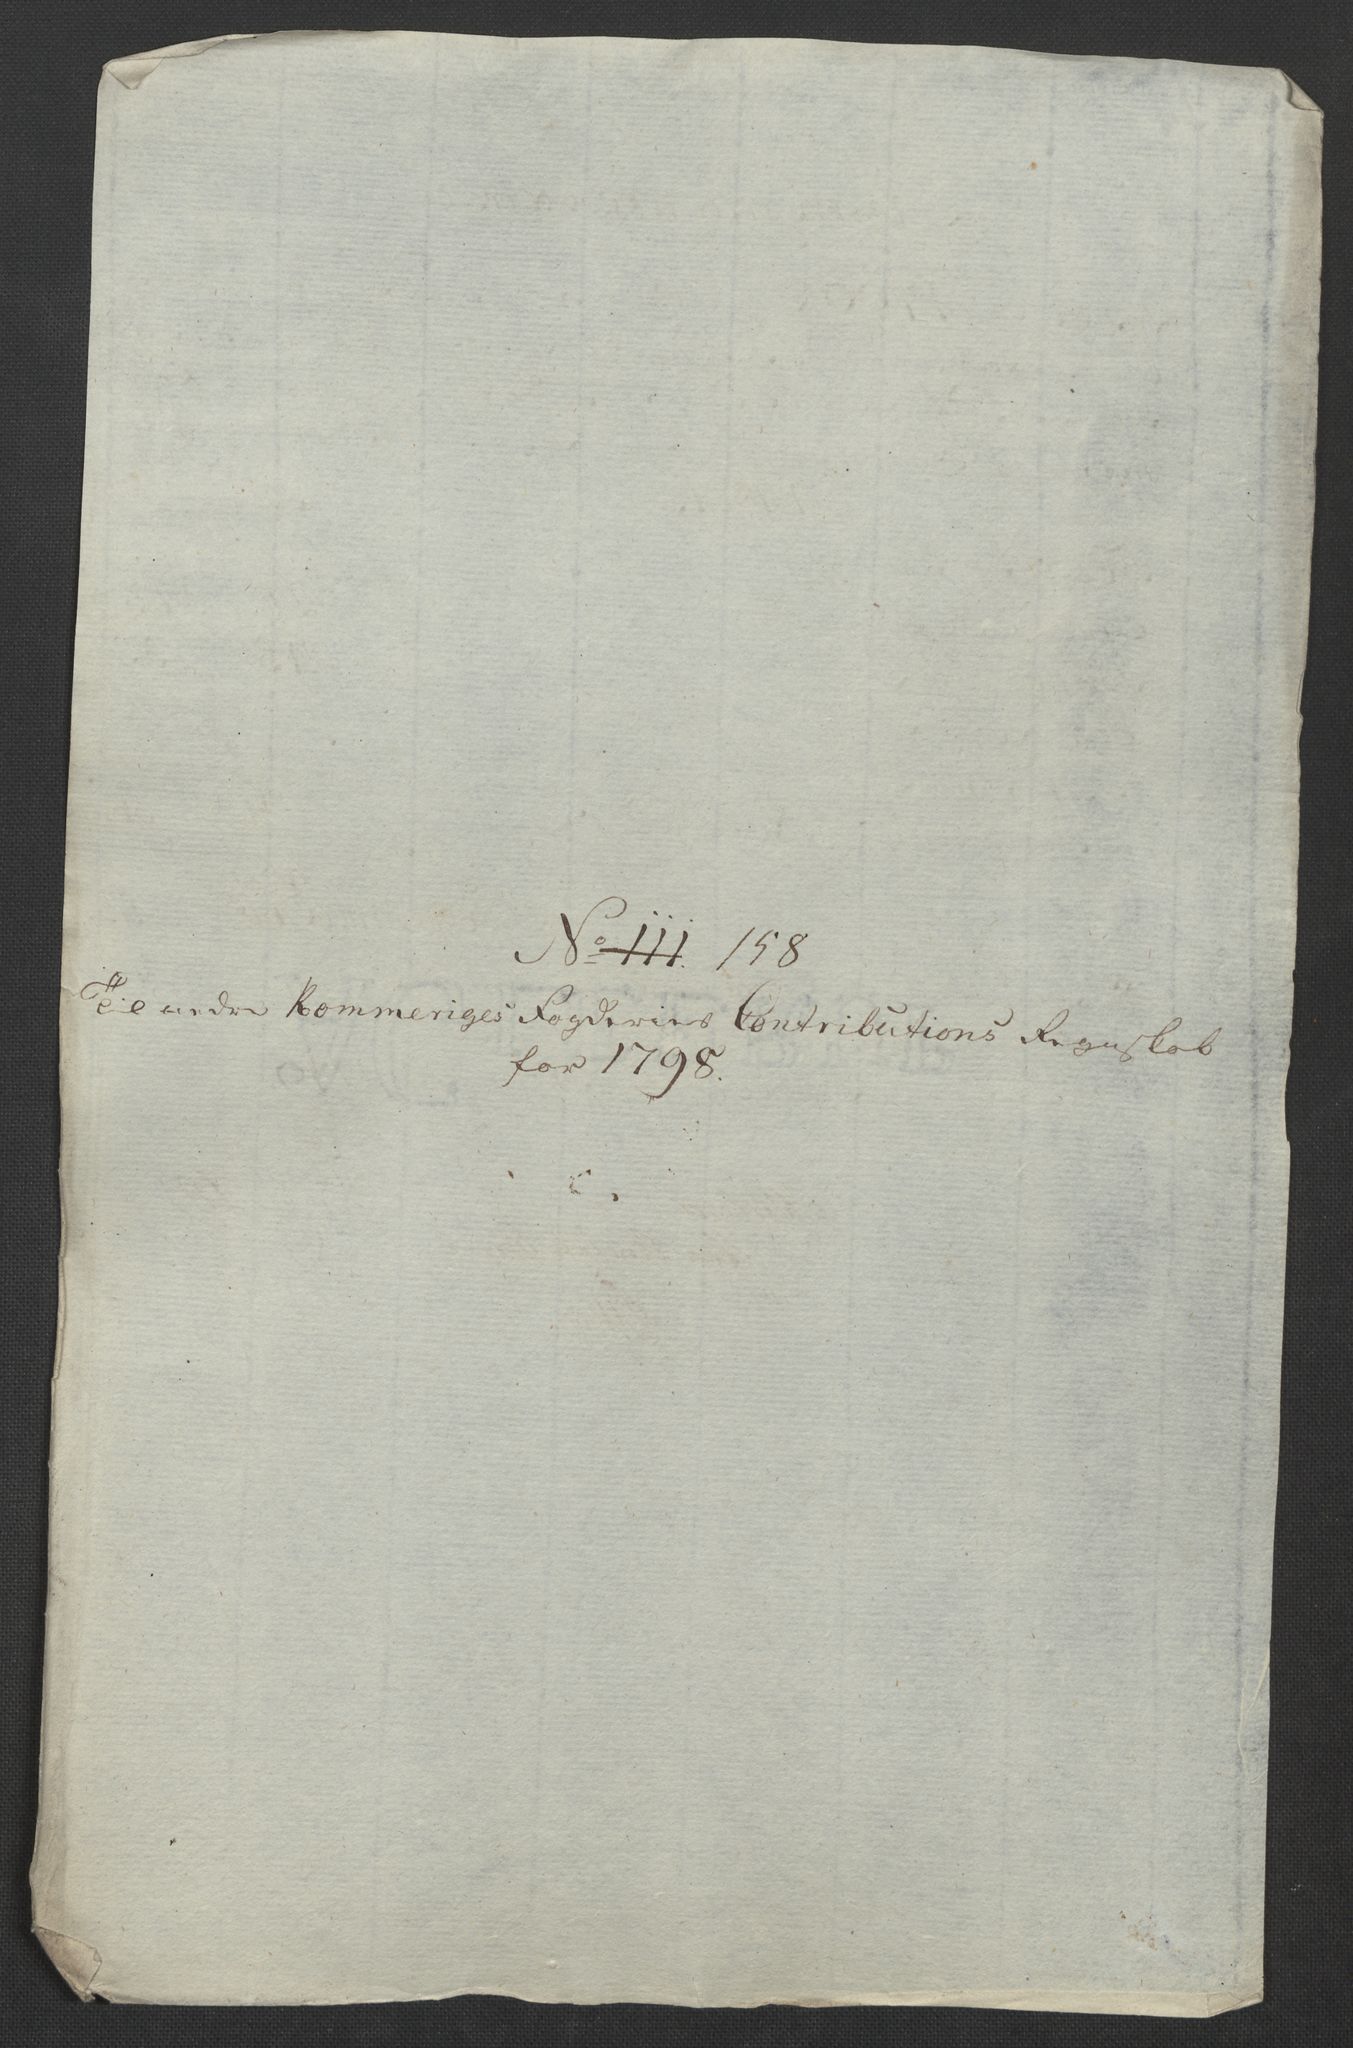 No 111. 158
Til nedre Rommeriges Fogderies Contributions Regnskab
for 1798.